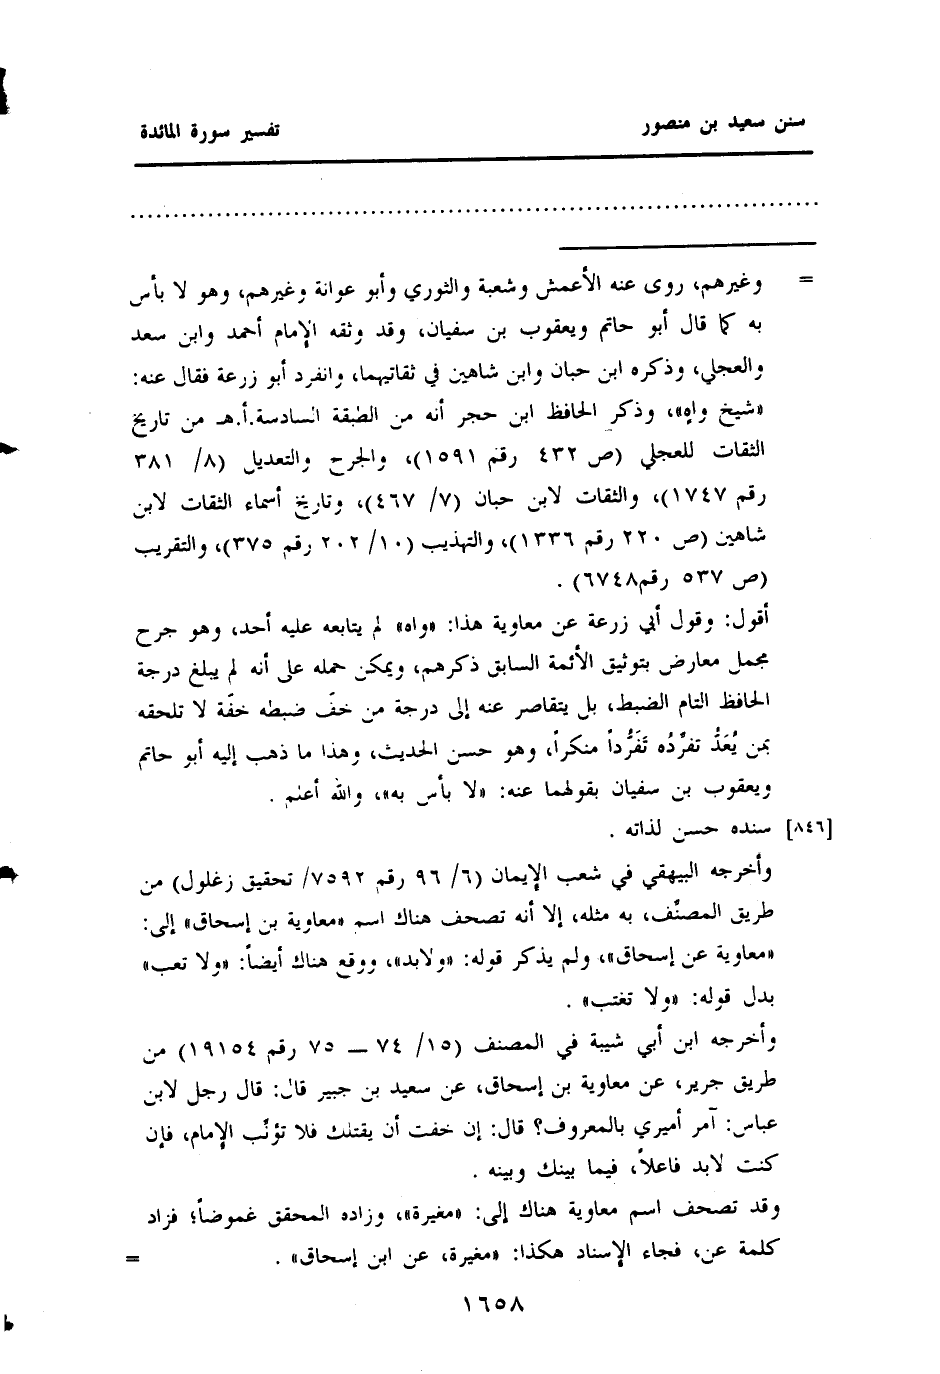 سنن سعيد بن منصور
تفسير سورة المائدة
= وغيرهم، روى عنه الأعمش وشعبة والثوري وأبو عوانة وغيرهم، وهو لا بأس
به كما قال أبو حاتم ويعقوب بن سفيان، وقد وثقه الإمام أحمد وابن سعد
والعجلي، وذكره ابن حبان وابن شاهين في ثقاتيهما، وانفرد أبو زرعة فقال عنه:
«شيخ واهٍ»، وذكر الحافظ ابن حجر أنه من الطبقة السادسة.أ.هـ من تاريخ
الثقات للعجلي (ص ٤٣٢ رقم ١٥٩١)، والجرح والتعديل (٨/ ٣٨١
رقم ١٧٤٧)، والثقات لابن حبان (٧/ ٤٦٧)، وتاريخ أسماء الثقات لابن
شاهين (ص ٢٢٠ رقم ١٣٣٦)، والتهذيب (١٠/ ٢٠٢ رقم ٣٧٥)، والتقريب
(ص ٥٣٧ رقم٦٧٤٨) .
أقول: وقول أبي زرعة عن معاوية هذا: «واه» لم يتابعه عليه أحد، وهو جرح
مجمل معارض بتوثيق الأئمة السابق ذكرهم، ويمكن حمله على أنه لم يبلغ درجة
الحافظ التام الضبط، بل يتقاصر عنه إلى درجة من خفّ ضبطه خفّة لا تلحقه
بمن يُعَدُّ تفرُّده تَفَرُّداً منكراً، وهو حسن الحديث، وهذا ما ذهب إليه أبو حاتم
ويعقوب بن سفيان بقولهما عنه: «لا بأس به»، والله أعلم .
[٨٤٦] سنده حسن لذاته .
وأخرجه البيهقي في شعب الإيمان (٦/ ٩٦ رقم ٧٥٩٢/ تحقيق زغلول) من
طريق المصنِّف، به مثله، إلا أنه تصحف هناك اسم «معاوية بن إسحاق» إلى:
«معاوية عن إسحاق»، ولم يذكر قوله: «ولابد»، ووقع هناك أيضاً: «ولا تعب»
بدل قوله: «ولا تغتب» .
وأخرجه ابن أبي شيبة في المصنف (١٥/ ٧٤ — ٧٥ رقم ١٩١٥٤) من
طريق جرير، عن معاوية بن إسحاق، عن سعيد بن جبير قال: قال رجل لابن
عباس: آمر أميري بالمعروف؟ قال: إن خفت أن يقتلك فلا تؤنِّب الإمام، فإن
كنت لابد فاعلاً، فيما بينك وبينه .
وقد تصحف اسم معاوية هناك إلى: «مغيرة»، وزاده المحقق غموضاً؛ فزاد
كلمة عن، فجاء الإسناد هكذا: «مغيرة، عن ابن إسحاق» . =
١٦٥٨